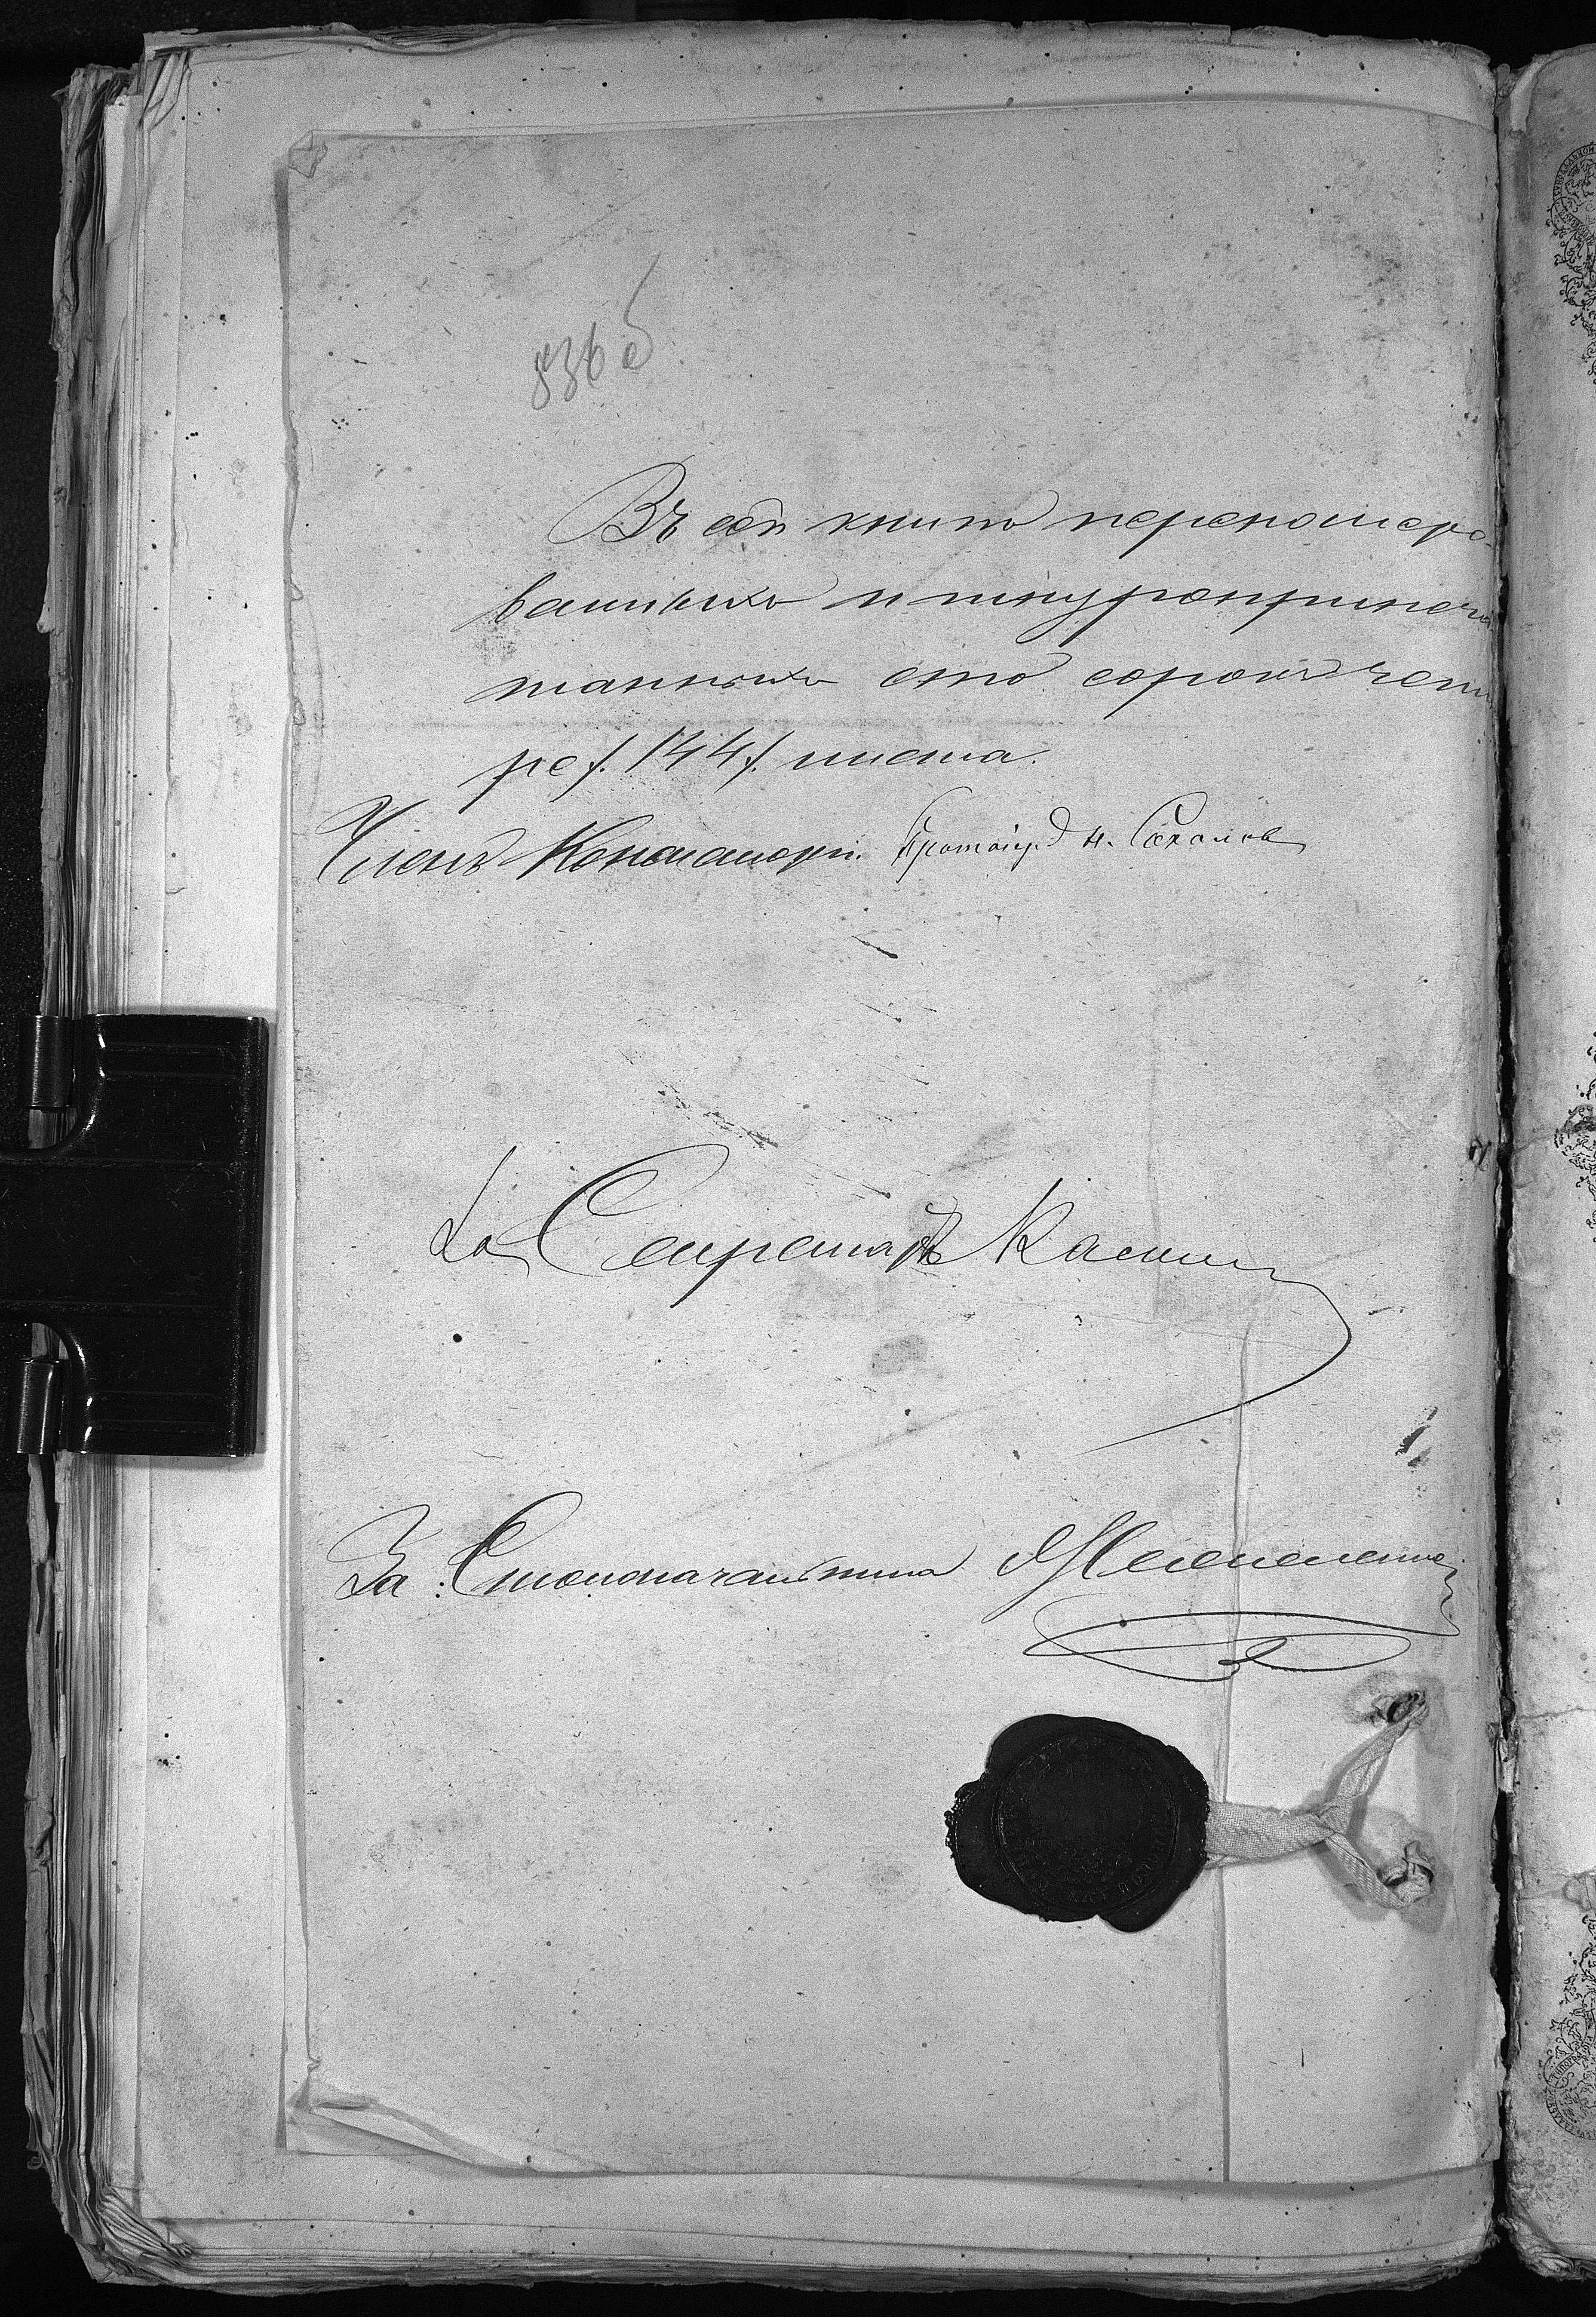 836 об
Въ сей книгѣ перенумеро-
ванныхъ и шнуроприпеча
танныхъ сто сорокъ четы
ре /. 144 /. листа.
Членъ Консисторіи. Протоіер. Н. Соколовъ
За Секретаря
За Столоначальника